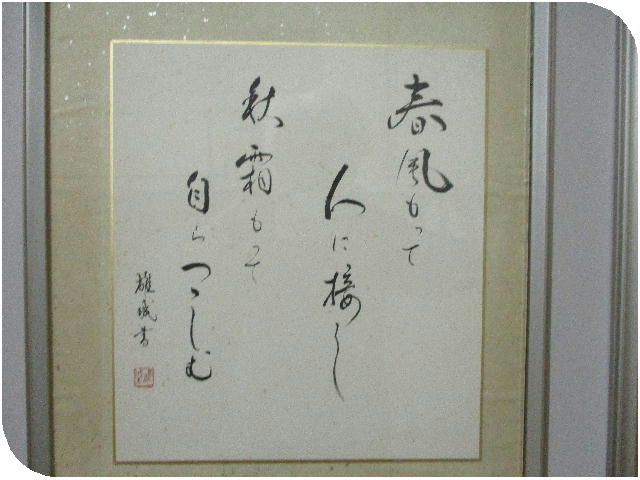 春風もって
人に接し
秋霜もって
自らつゝしむ
雄峯書